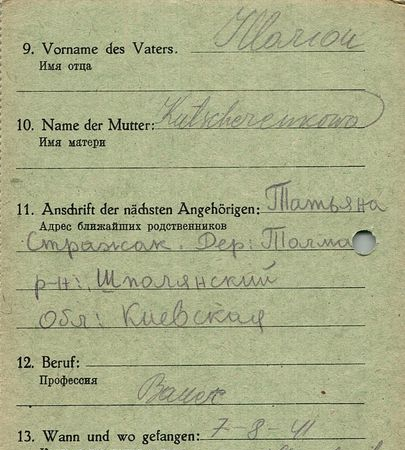 9. Vorname des Vaters. Ilarion
Имя отца
10. Name der Mutter: Kutscherenkowa
Имя матери
11. Anschrift der nächsten Angehörigen: Татьяна
Адрес ближайших родственников
Стражак. Дер: Толма
р-н: Шполянский
обл: Киевская
12. Beruf:
Профессия
13. Wann und wo gefangen: 7-8-41